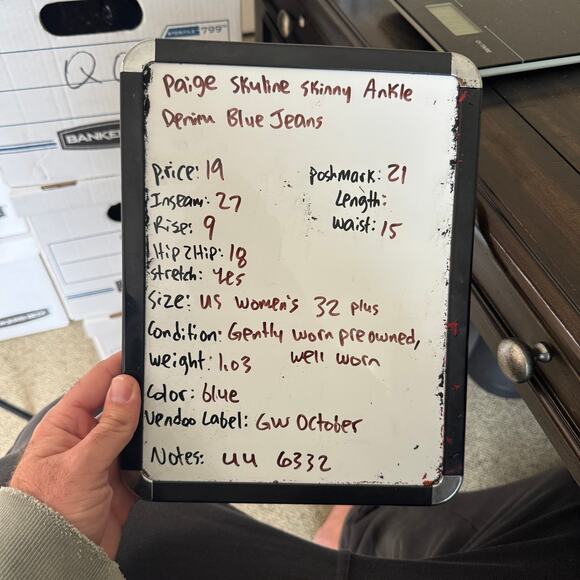 799
QC
BANKE
Paige Skyline Skinny Ankle
Denim Blue Jeans
price: 19
Poshmark: 21
Inseam: 27
Length:
Rise: 9
Waist: 15
Hip2Hip: 18
stretch: Yes
Size: US Women's 32 plus
Condition: Gently worn preowned,
well worn
weight: 1.03
Color: blue
Vendoo Label: GW October
Notes: UU 6332